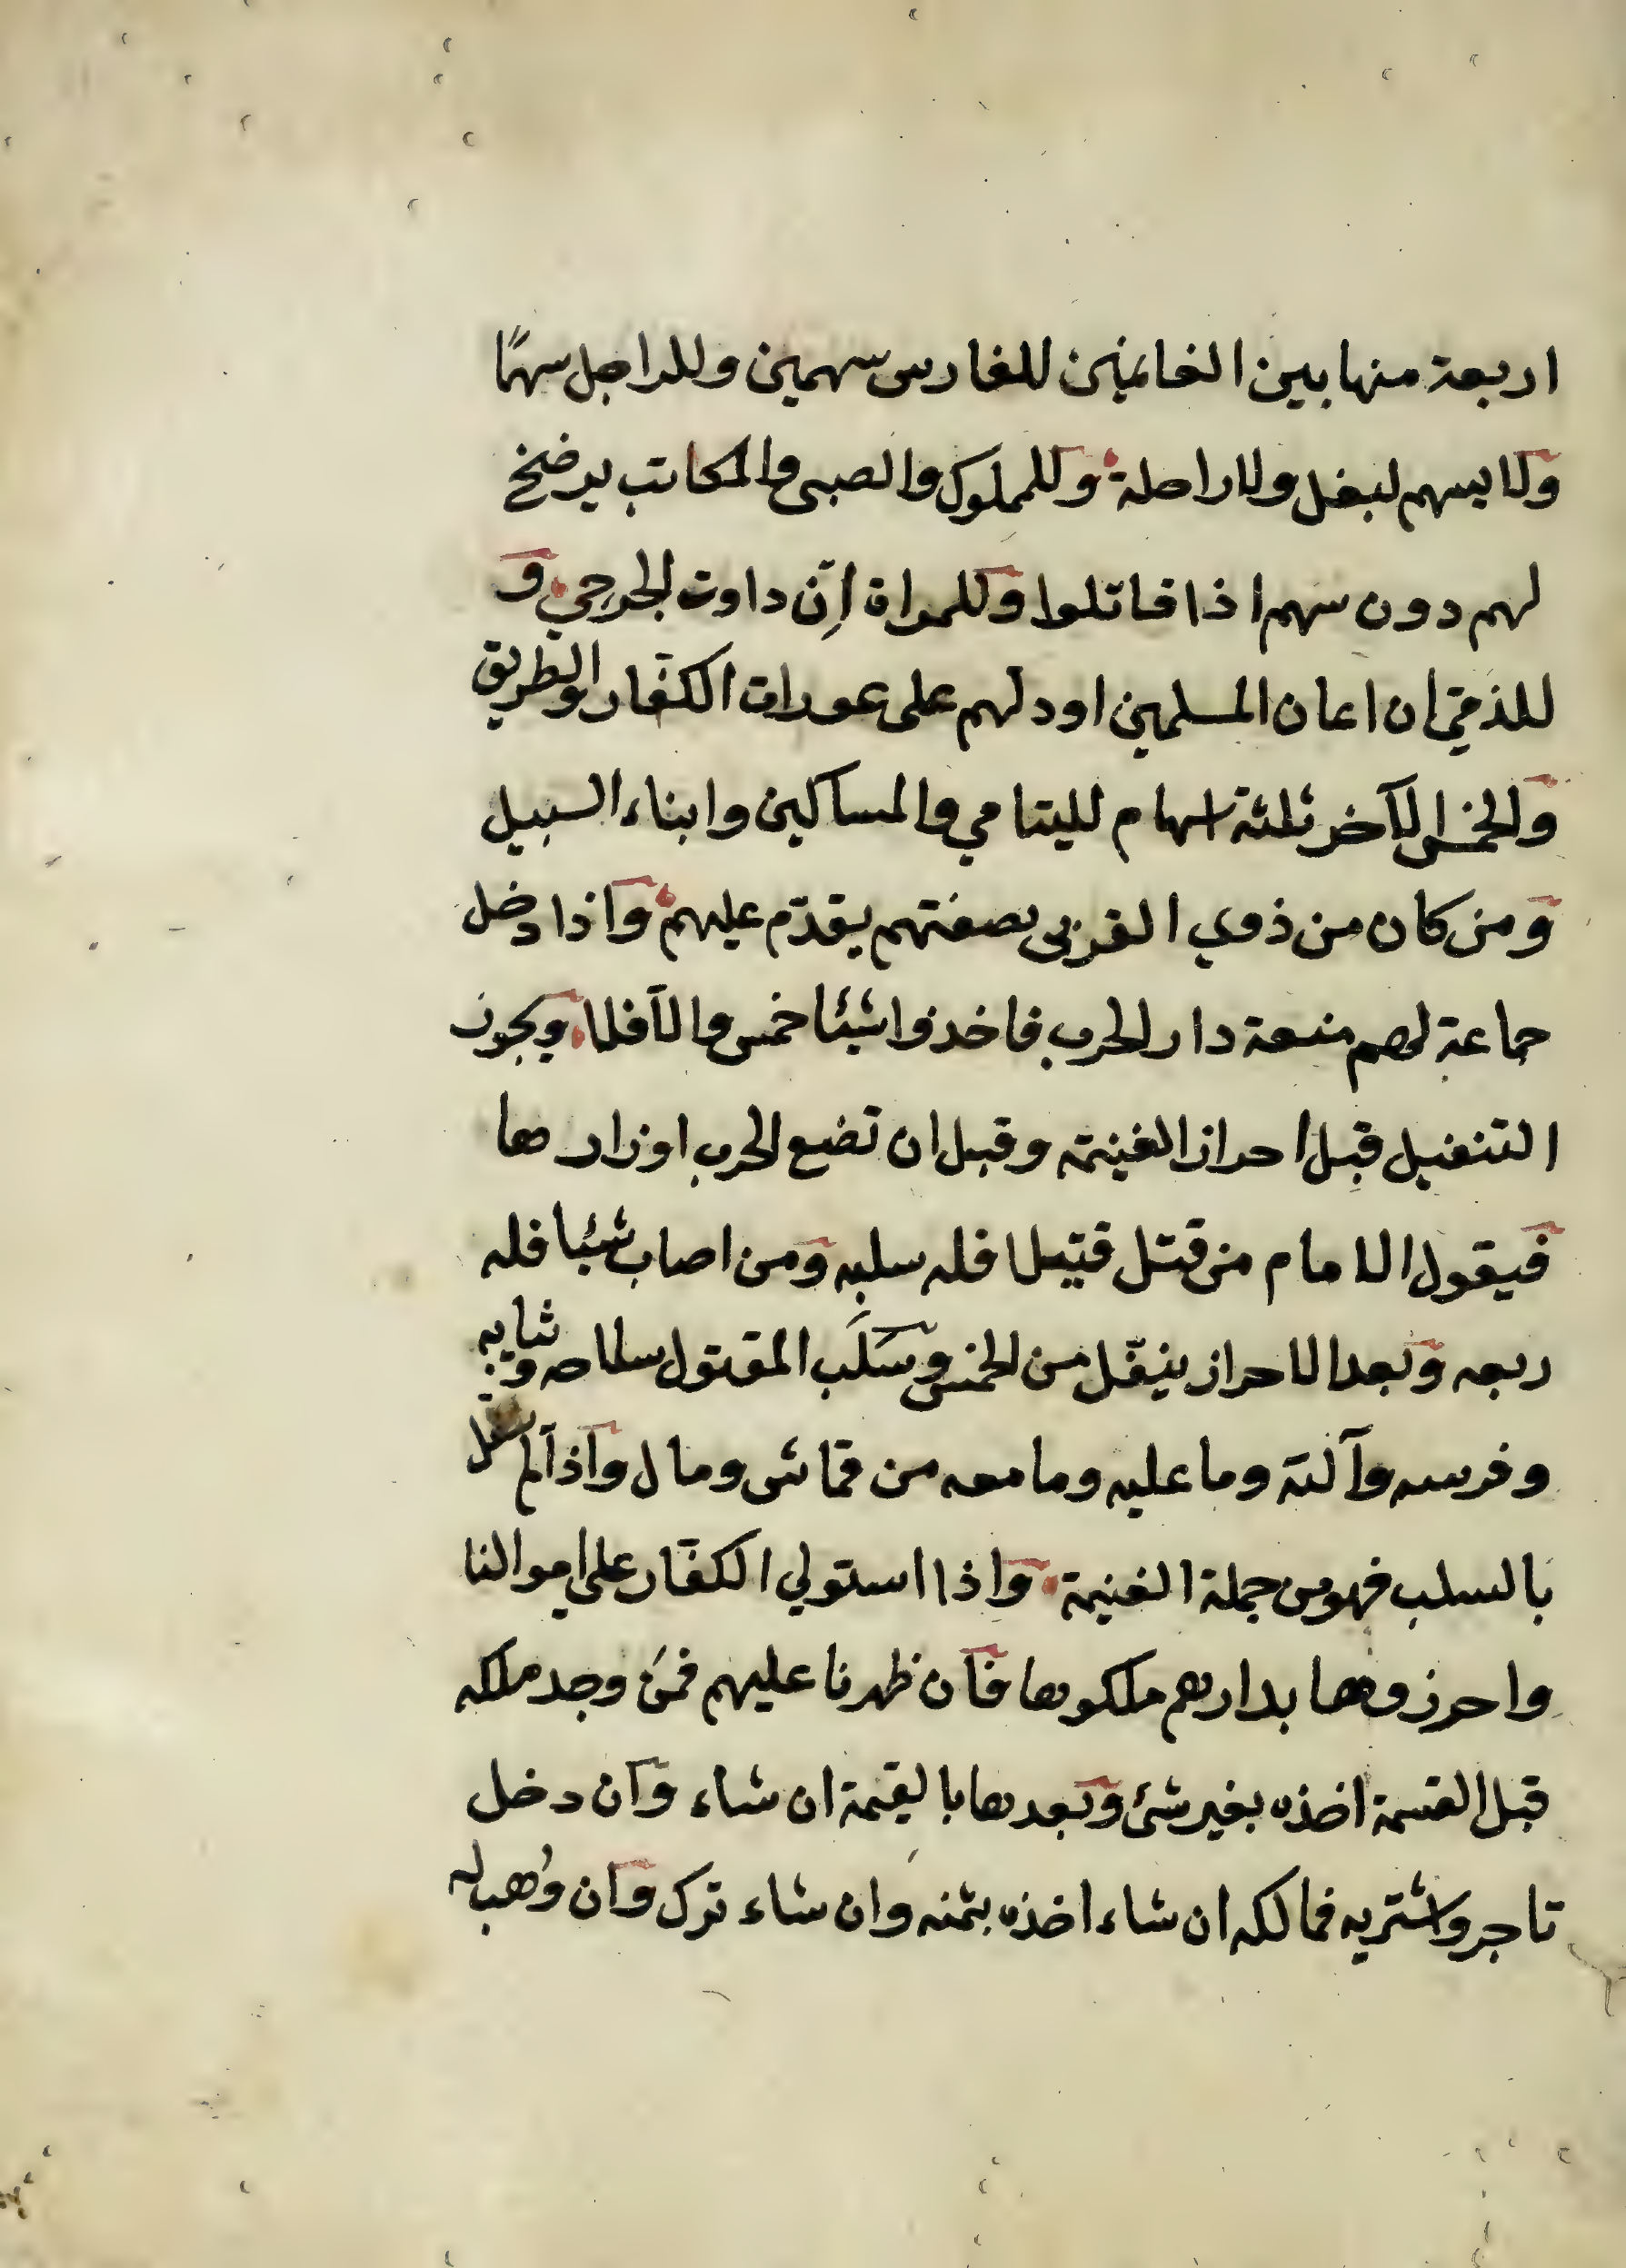 اربعة منها بين الغانمين للفارس سهمين وللراجل سهمًا
ولا يسهم لبغل ولا راحلة وللمملوك والصبى والمكاتب يرضخ
لهم دون سهم اذا قاتلوا وللمراة اِن داوت الجرحي و
للذمّي ان اعان المسلمين او دلهم على عورات الكفّار او الطريق
والخمس الآخر ثلثة اسهام لليتامي والمساكين وابناء السبيل
ومن كان من ذوي القربى بصفتهم يقدّم عليهم واذا دخل
جماعة لهم منعة دار الحرب فاخذوا شيئا خمس والّا فلا ويجوز
التنفيل قبل احراز الغنيمة وقبل ان تضع الحرب اوزارها
فيقول الامام من قتل قتيلا فله سلبه ومن اصاب شيئا فله
ربعه وبعد الاحراز ينفّل من الخمس وسَلَب المقتول سلاحه وثيابه
وفرسه وآلته وما عليه وما معه من قماش ومال واذا لم ينفل
بالسلب فهو من جملة الغنيمة واذا استولي الكفّار على اموالنا
واحرزوها بدارهم ملكوها فان ظهرنا عليهم فمن وجد ملكه
قبل القسمة اخذه بغير شئ وبعدها بالقيمة ان شاء وان دخل
تاجر واشتريه فمالكه ان شاء اخذه بثمنه وان شاء ترك وان وُهب له